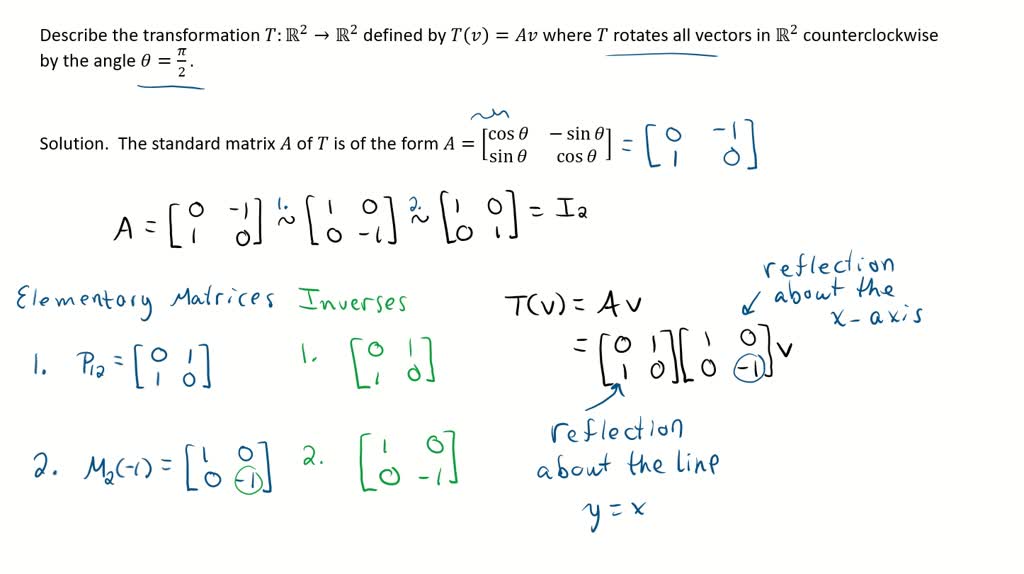 Describe the transformation T: ℝ² → ℝ² defined by T(v) = Av where T rotates all vectors in ℝ² counterclockwise
by the angle θ = π/2.
Solution. The standard matrix A of T is of the form A = [cos θ −sin θ; sin θ cos θ] = [0 −1; 1 0]
A = [0 −1; 1 0] 1. ~ [1 0; 0 −1] 2. ~ [1 0; 0 1] = I₂
Elementary Matrices Inverses
1. P₁₂ = [0 1; 1 0] 1. [0 1; 1 0]
2. M₂(−1) = [1 0; 0 −1] 2. [1 0; 0 −1]
T(v) = Av
= [0 1; 1 0] [1 0; 0 −1] v
reflection
about the
x-axis
reflection
about the line
y = x